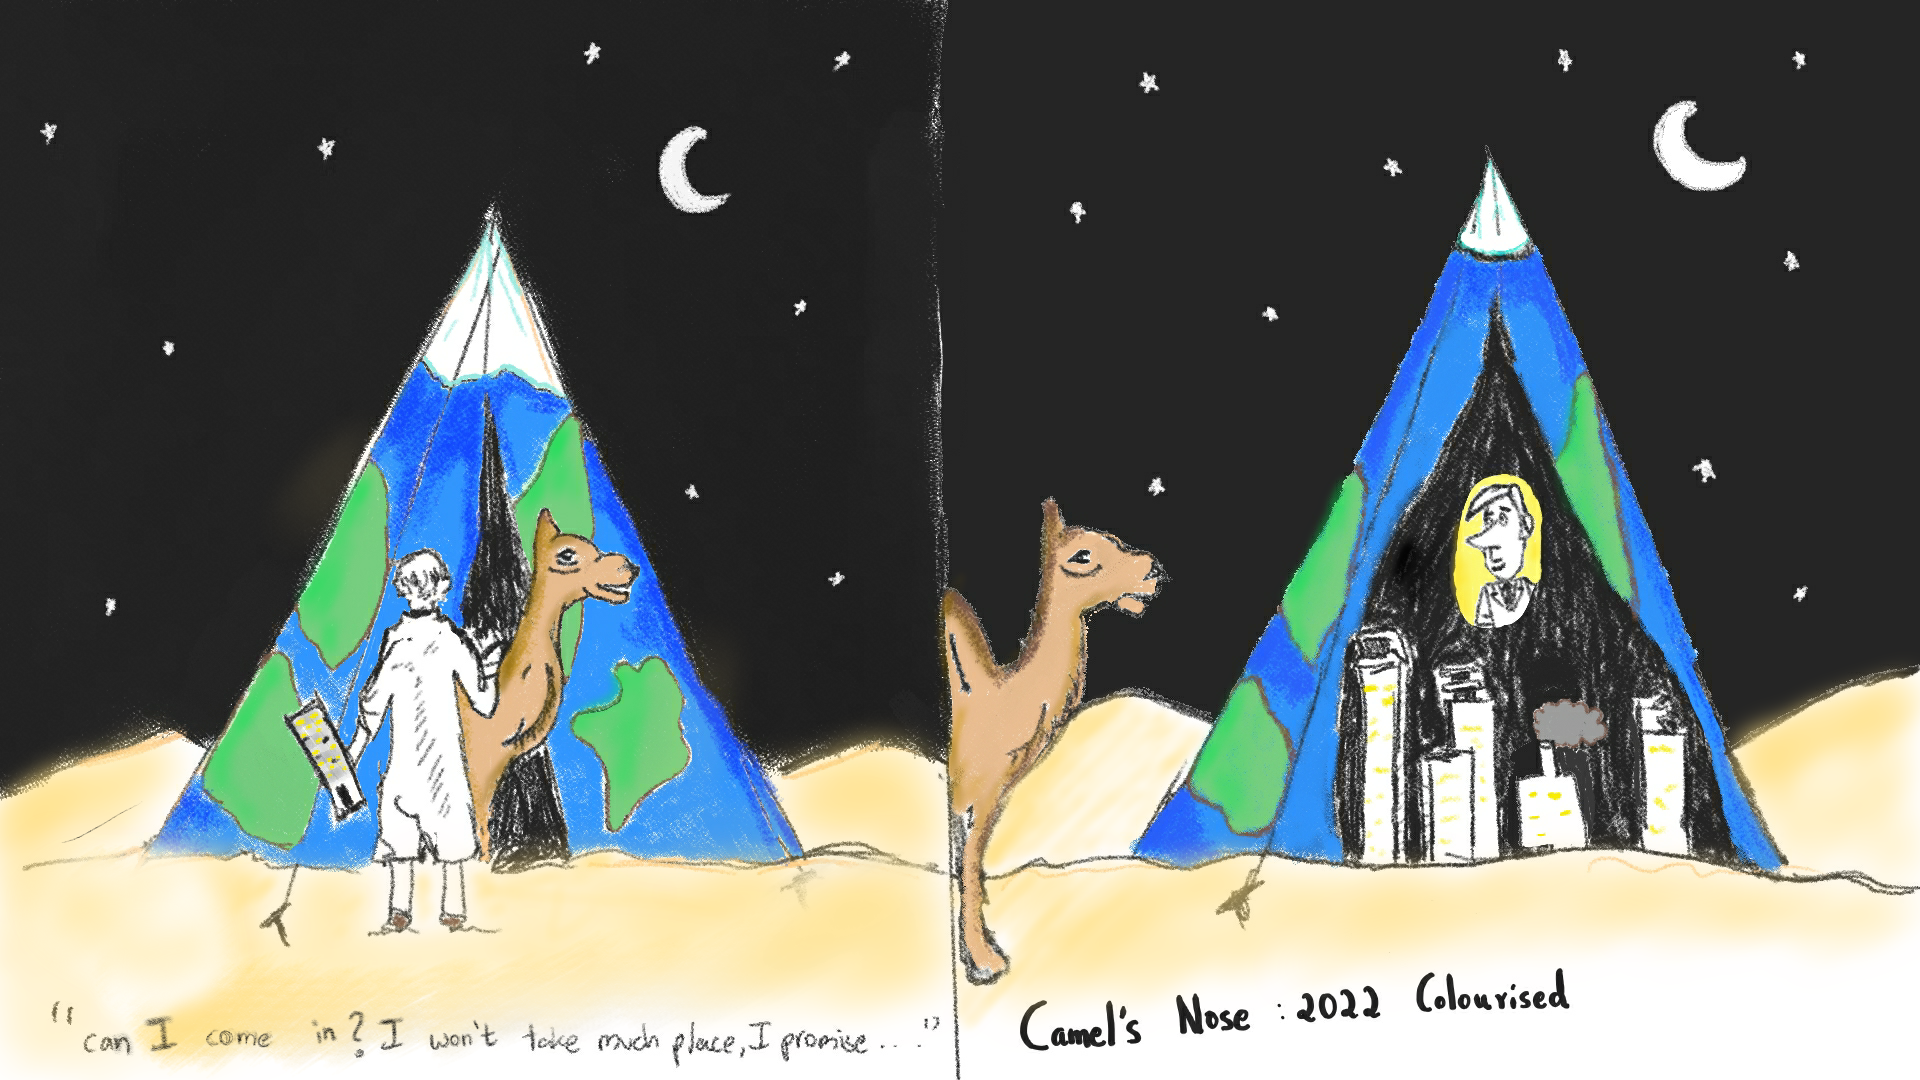 "can I come in? I won't take much place, I promise...."
Camel's Nose : 2022 Colourised